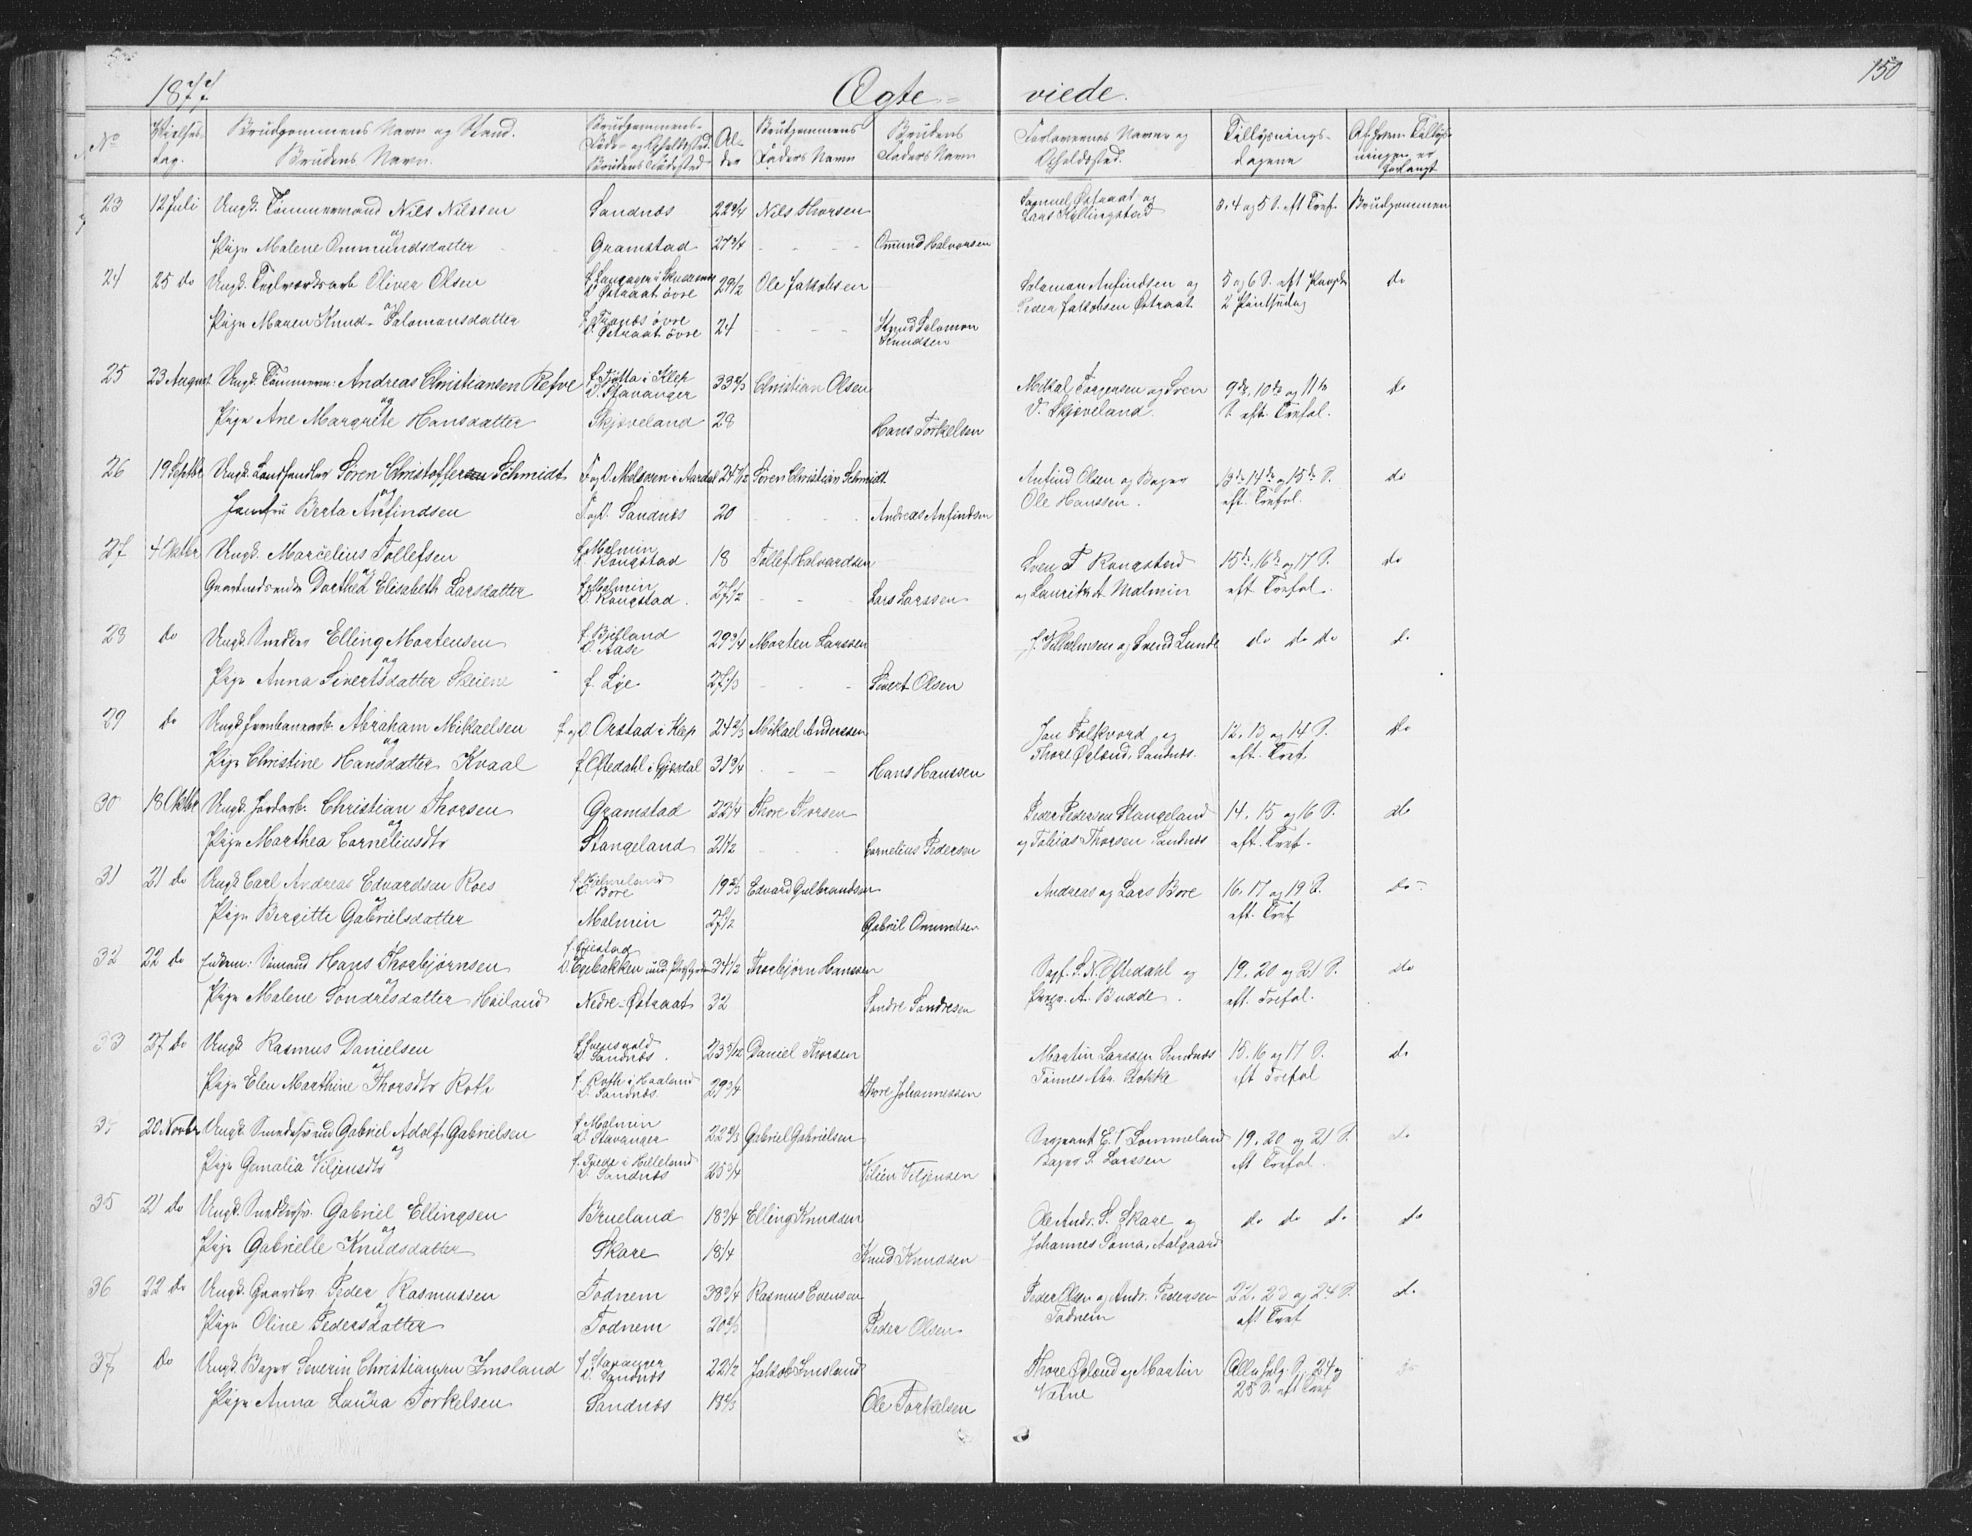 1877. Ægte- viede. 150
No Vielses- dag. Brudgommens Navn og Stand. Brudens Navn. Brudgommens Føde- og Opholdssted. Brudens Fødested Al- der Brudgommens Faders Navn Brudens Faders Navn Forlovernes Navne og Opholdssted. Tillysnings- dagene Af hvem Tillys- ningen er forlangt
23 12 Juli Ungk. Tømmermand Nils Nilssen Sandnæs 22 3/4 Nils Thorsen Samuel Østraat og Lars Kyllingstad 3. 4 og 5 S. eft Tref. Brudgommen
og
Pige Malene Ommundsdatter Gramstad 27 3/4 Omund Halvorsen
24 25 do Ungk. Teglværksarb Oliver Olsen Østraat øvre 29 1/2 Ole Jakobsen Salamon Anfindsen og Peder Jakobsen Østraat 5 og 6 S. eft Paaske 2 Pintsedag do
og
Pige Maren Knud- Salomonsdatter Østraat øvre 24 Knud Salomon Knudsen
25 23 August Ungk. Tømmerm: Andreas Christiansen Refve f. Tjøtta i Klep Stavanger 33 2/3 Christian Olsen Mikal Torgersen og Sven V. Skjæveland. 9de, 10de og 11te S. eft. Trefol. do
og
Pige Ane Margrete Hansdatter Skjæveland 28 Hans Torkelsen
26 19 Septbr Ungk. Landhandler Søren Christoffersen Schmidt i Aardal 24 Søren Christian Schmidt Anfind Olsen og Bager Ole Hanssen. 13de 14de og 15de S. eft. Trefol. do
og
Jomfru Berta Anfindsen F og O. Sandnæs 20 Andreas Anfindsen
27 4 Oktbr Ungk. Marcelius Tollefsen f. Malmin Rougstad 18 Tollef Halvardsen Sven T Rougstad og Laurits A Malmin 15de, 16de og 17 S. eft Trefol. do
og
Dorthea Elisabeth Larsdatter f. Malmin O. Rougstad. 27 1/2 Lars Larssen
28 do Ungk. Snedker Elling Mortensen f. Bjelland O. Aase 29 3/4 Morten Larssen Vilhelmsen og Svend Lunde do do do do
og
Pige Anna Sivertsdatter Skeiene f. Lye 27 1/3 Sivert Olsen
29 do Ungk. Jernbanearb. Abraham Mikaelsen f og O. Orstad i Klep 24 2/3 Mikael Anderssen Jan Folkvord og Thore Øglænd, Sandnæs. 12. 13 og 14 S. eft. Tref do
og
Pige Christine Hansdatter Kvaal f. Oftedahl i Gjesdal 31 3/4 Hans Hanssen
30 18 Oktbr Ungk. Jordarb. Christian Thorsen Gramstad 22 1/4 Thore Thorsen Peder Pedersen Stangeland og Tobias Thorsen Sandnæs 14. 15 og 16 S. eft. Tref. do
og
Pige Marthea Corneliusdtr Stangeland 21 1/2 Cornelius Pedersen
31 21 do Ungk Carl Andreas Edvardsen Roes Bore 19 2/3 Edvard Gulbrandsen Andreas og Lars Bore 16. 17 og 19 S. eft. Tref do
og
Pige Bergitte Gabrielsdatter Malmin 27 1/2 Gabriel Omundsen
32 22 do Enkem: Sømand Hans Thorbjørnsen O. Egebakken 34 1/2 Thorbjørn Hanssen S. N. Oftedahl og A. Budde. 19. 20 og 21 S. eft. Trefol. do
og
Pige Malene Sondresdatter Høiland Nedre-Østraat 32 Sondre Sondresen
33 27 do Ungk Rasmus Danielsen f. Svensvold Sandnæs. 23 Daniel Thorsen Martin Larssen Sandnæs Tønnes Abr. Stokke 15. 16 og 17 S. eft Trefol do
og
Pige Elen Marthine Thorsdtr Roth f. Roth i Haaland O. Sandnæs. 29 3/4 Thore Johannessen
34 20 Novbr Ungk. Smedesvend Gabriel Adolf Gabrielsen f Malmin O. Stavanger 22 2/3 Gabriel Gabrielsen Sergeant E. V Sommeland Bager S. Larssen 19. 20 og 21 S. eft Trefol. do
og
Pige Gemalia Viljensdtr i Helleland O. Sandnæs 25 3/4 Vilien Viljensen
35 21 do Ungk. Gabriel Ellingsen Brueland 18 3/4 Elling Knudsen Ole Andr. S. Skare og Johannes Soma, Aalgaard do do do do
og
Pige Gabrielle Knudsdatter Skare 18 1/4 Knud Knudsen
36 22 do Ungk. Gaardbr Peder Rasmussen Fodnem 38 3/4 Rasmus Evensen Peder Olsen og Andr. Pedersen Fodnem 22. 23 og 24 S. eft Tref do
og
Pige Oline Pedersdatter Fodnem 20 2/3 Peder Olsen
37 do Ungk Bager Severin Christiansen Imsland f Stavanger O. Sandnæs 22 1/2 Jakob Imsland Thore Øglænd og Martin Vatne Allehelg. S, 24 og 25 S. eft Tref do
Pige Anna Laura Torkelsen Sandnæs 18 2/3 Ole Torkelsen